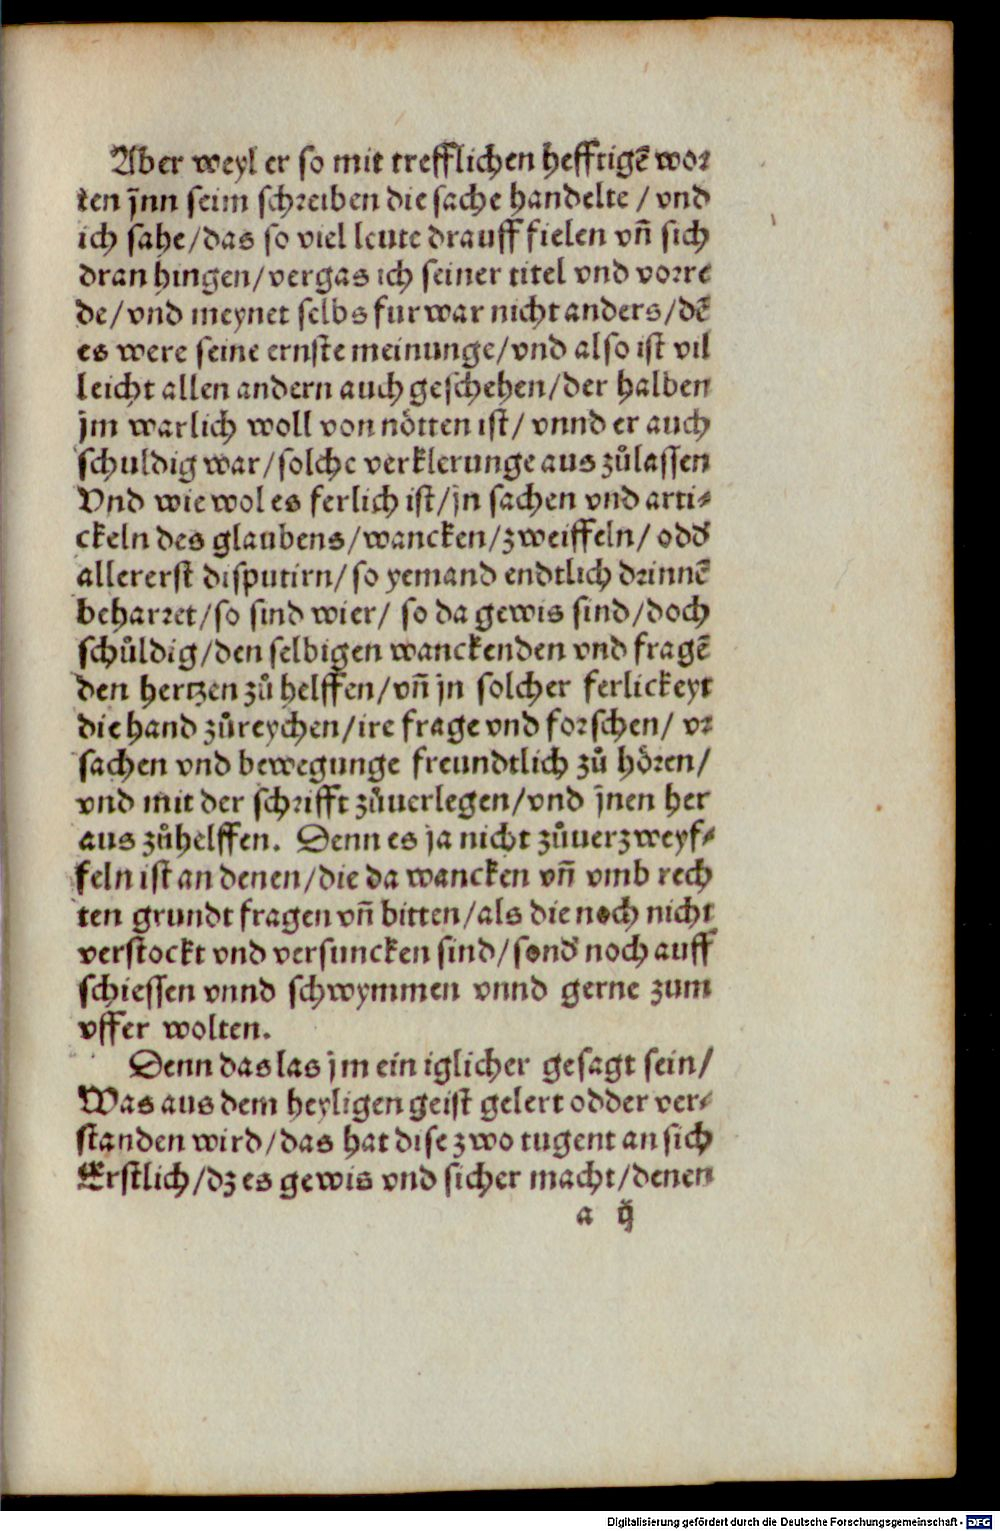 Aber weyl er so mit trefflichen hefftigē wor
ten jnn seim schreiben die sache handelte / vnd
ich sahe/das so viel leute drauff fielen vñ sich
dran hingen/vergas ich seiner titel vnd vorre
de/vnd meynet selbs fur war nicht anders/dē
es were seine ernste meinunge/vnd also ist vil
leicht allen andern auch geschehen/der halben
jm warlich woll von nötten ist/ vnnd er auch
schuldig war/solche verklerunge aus zůlassen
Vnd wie wol es ferlich ist/jn sachen vnd arti⸗
ckeln des glaubens/wancken/zweiffeln/ odď
allererst disputirn/ so yemand endtlich drinnē
beharret/so sind wier/ so da gewis sind/doch
schůldig/den selbigen wanckenden vnd fragē
den hertzen zů helffen/vñ jn solcher ferlickeyt
die hand zůreychen/ire frage vnd forschen/ vr
sachen vnd bewegunge freundtlich zů hören/
vnd mit der schrifft zůuerlegen/vnd jnen her
aus zůhelffen. Denn es ja nicht zůuerzweyf⸗
feln ist an denen/die da wancken vñ vmb rech
ten grundt fragen vñ bitten/als die noch nicht
verstockt vnd versuncken sind/sonď noch auff
schiessen vnnd schwymmen vnnd gerne zum
vffer wolten.
Denn das las jm ein iglicher gesagt sein/
Was aus dem heyligen geist gelert odder ver⸗
standen wird/das hat dise zwo tugent an sich
Erstlich/dz es gewis vnd sicher macht/denen
a ij
Digitalisierung gefördert durch die Deutsche Forschungsgemeinschaft - DFG